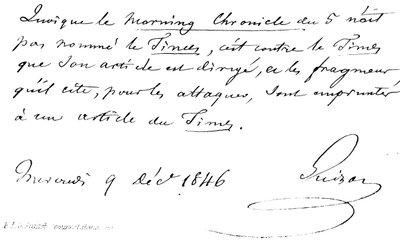 Quoique le Morning Chronicle du 5 n'ait
pas nommé le Times, c'est contre le Times
que son article est dirigé, et les fragmens
qu'il cite, pour les attaquer, sont empruntés
à un article du Times.
Mercredi 9 Déc 1846
Guizot